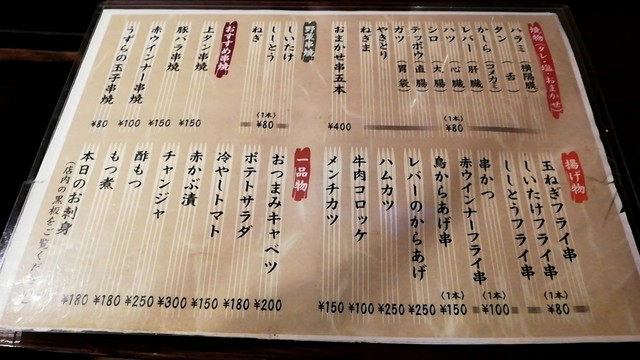 焼物(タレ・塩・おまかせ)
ハラミ(横隔膜)
タン(舌)
かしら(コメカミ)
レバー(肝臓)
ハツ(心臓)
シロ(大腸)
テッポウ(直腸)
ガツ(胃袋)
やきとり
ねぎま
(1本)
¥80
おまかせ串五本
¥400
野菜串焼
しいたけ
ししとう
ねぎ
(1本)
¥80
おすすめ串焼
上タン串焼
¥150
豚バラ串焼
¥150
赤ウインナー串焼
¥100
うずらの玉子串焼
¥80
揚げ物
玉ねぎフライ串
しいたけフライ串
ししとうフライ串
(1本)
¥80
串かつ
赤ウインナーフライ串
(1本)
¥100
鳥からあげ串
(1本)
¥150
レバーのからあげ
¥250
ハムカツ
¥250
牛肉コロッケ
¥100
メンチカツ
¥150
一品物
おつまみキャベツ
¥200
ポテトサラダ
¥180
冷やしトマト
¥150
赤かぶ漬
¥300
チャンジャ
¥250
酢もつ
¥180
もつ煮
¥180
本日のお刺身
(店内の黒板をご覧くだ